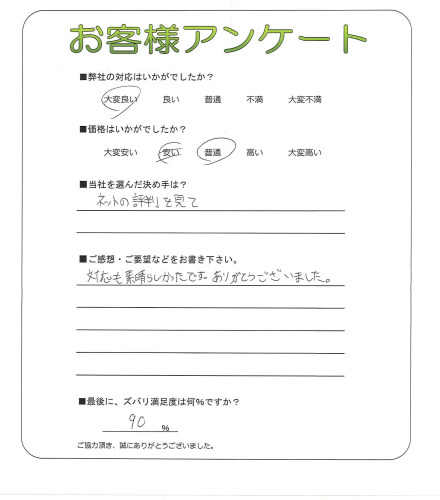 お客様アンケート
■弊社の対応はいかがでしたか？
大変良い 良い 普通 不満 大変不満
■価格はいかがでしたか？
大変安い 安い 普通 高い 大変高い
■当社を選んだ決め手は？
ネットの評判を見て
■ご感想・ご要望などをお書き下さい。
対応も素晴らしかったです。ありがとうございました。
■最後に、ズバリ満足度は何％ですか？
90 ％
ご協力頂き、誠にありがとうございました。